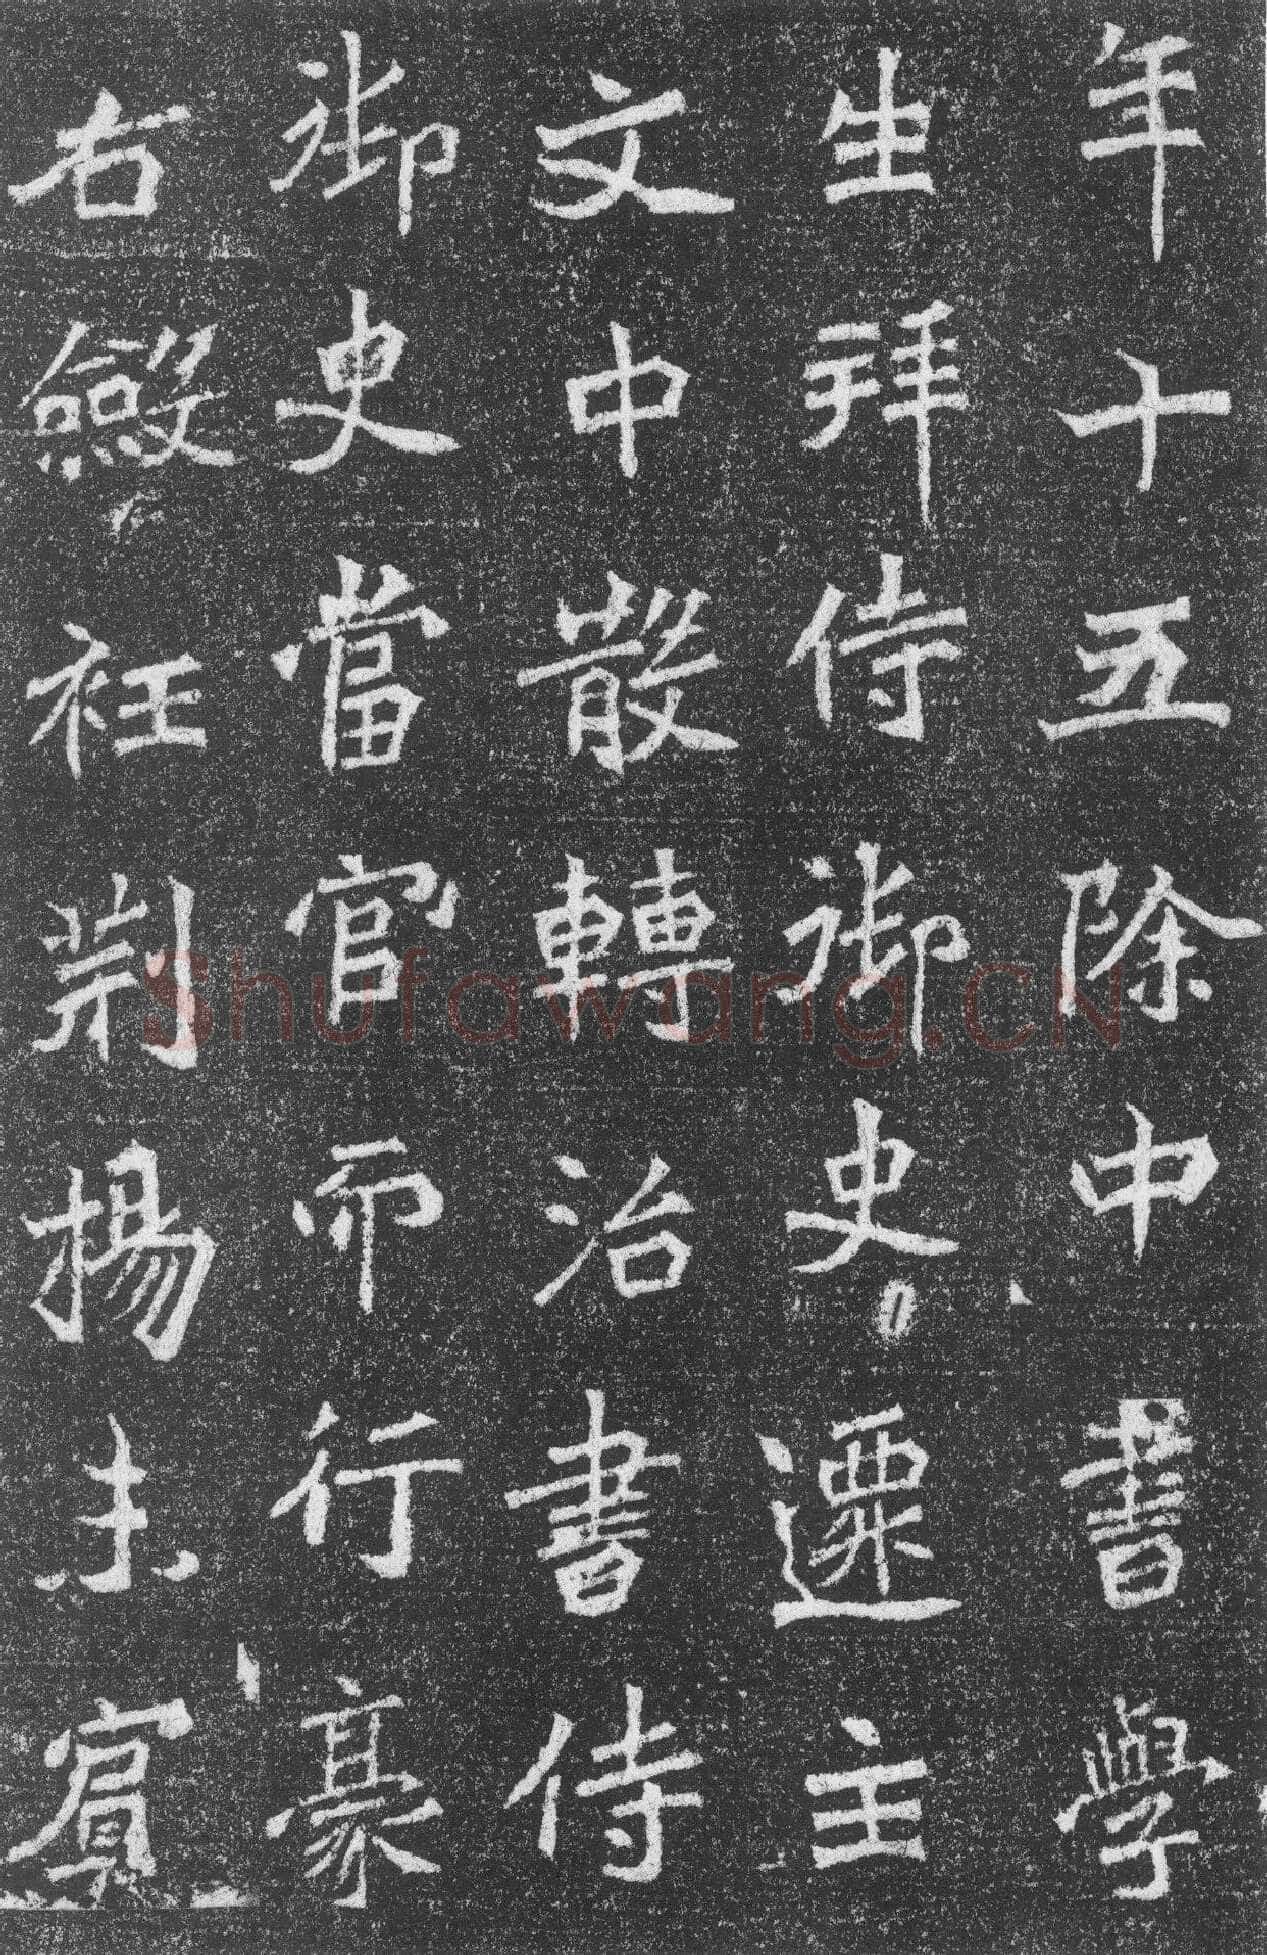 年十五除中書學
生拜侍御史遷主
文中散轉治書侍
御史當官而行豪
右斂衽荊揚未賓
Shufawang.CN